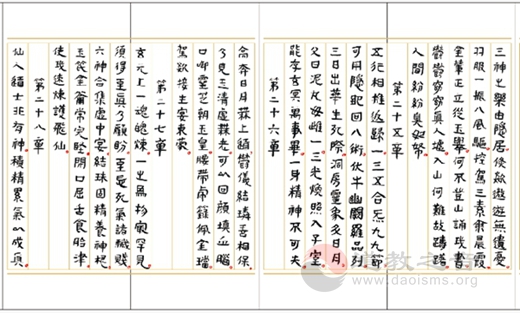 三神之樂由隱居倏欻遨遊無遺憂
羽服一振八風驅控駕三素乘晨霞
金輦正立從玉輿何不登山誦我書
鬱鬱窈窈真人墟入山何難故躊躇
人間紛紛臭如帤
第二十五章
五行相推返歸一三五合炁九九節
可用隱地回八術伏牛幽闕羅品列
三日出華生死際洞房靈象斗日月
父曰泥丸母雌一三光煥照入子室
能存玄冥萬事畢一身精神不可失
第二十六章
高奔日月吾上道鬱儀結璘善相保
乃見玉清虛無老可以回顏填血腦
口銜靈芝攜五皇腰帶虎籙佩金璫
駕欻接生宴東蒙
第二十七章
玄元上一魂魄煉一之為物叵卒見
須得至真乃顧盼至忌死氣諸穢賤
六神合集虛中宴結珠固精養神根
玉笢金籥常完堅閉口屈舌食胎津
使我遂煉獲飛仙
第二十八章
仙人道士非有神積精累氣以成真
道教之音
www.daoisms.org